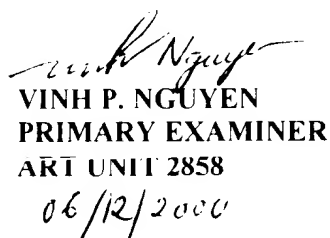 Vinh Nguyen
VINH P. NGUYEN
PRIMARY EXAMINER
ART UNIT 2858
06/12/2000